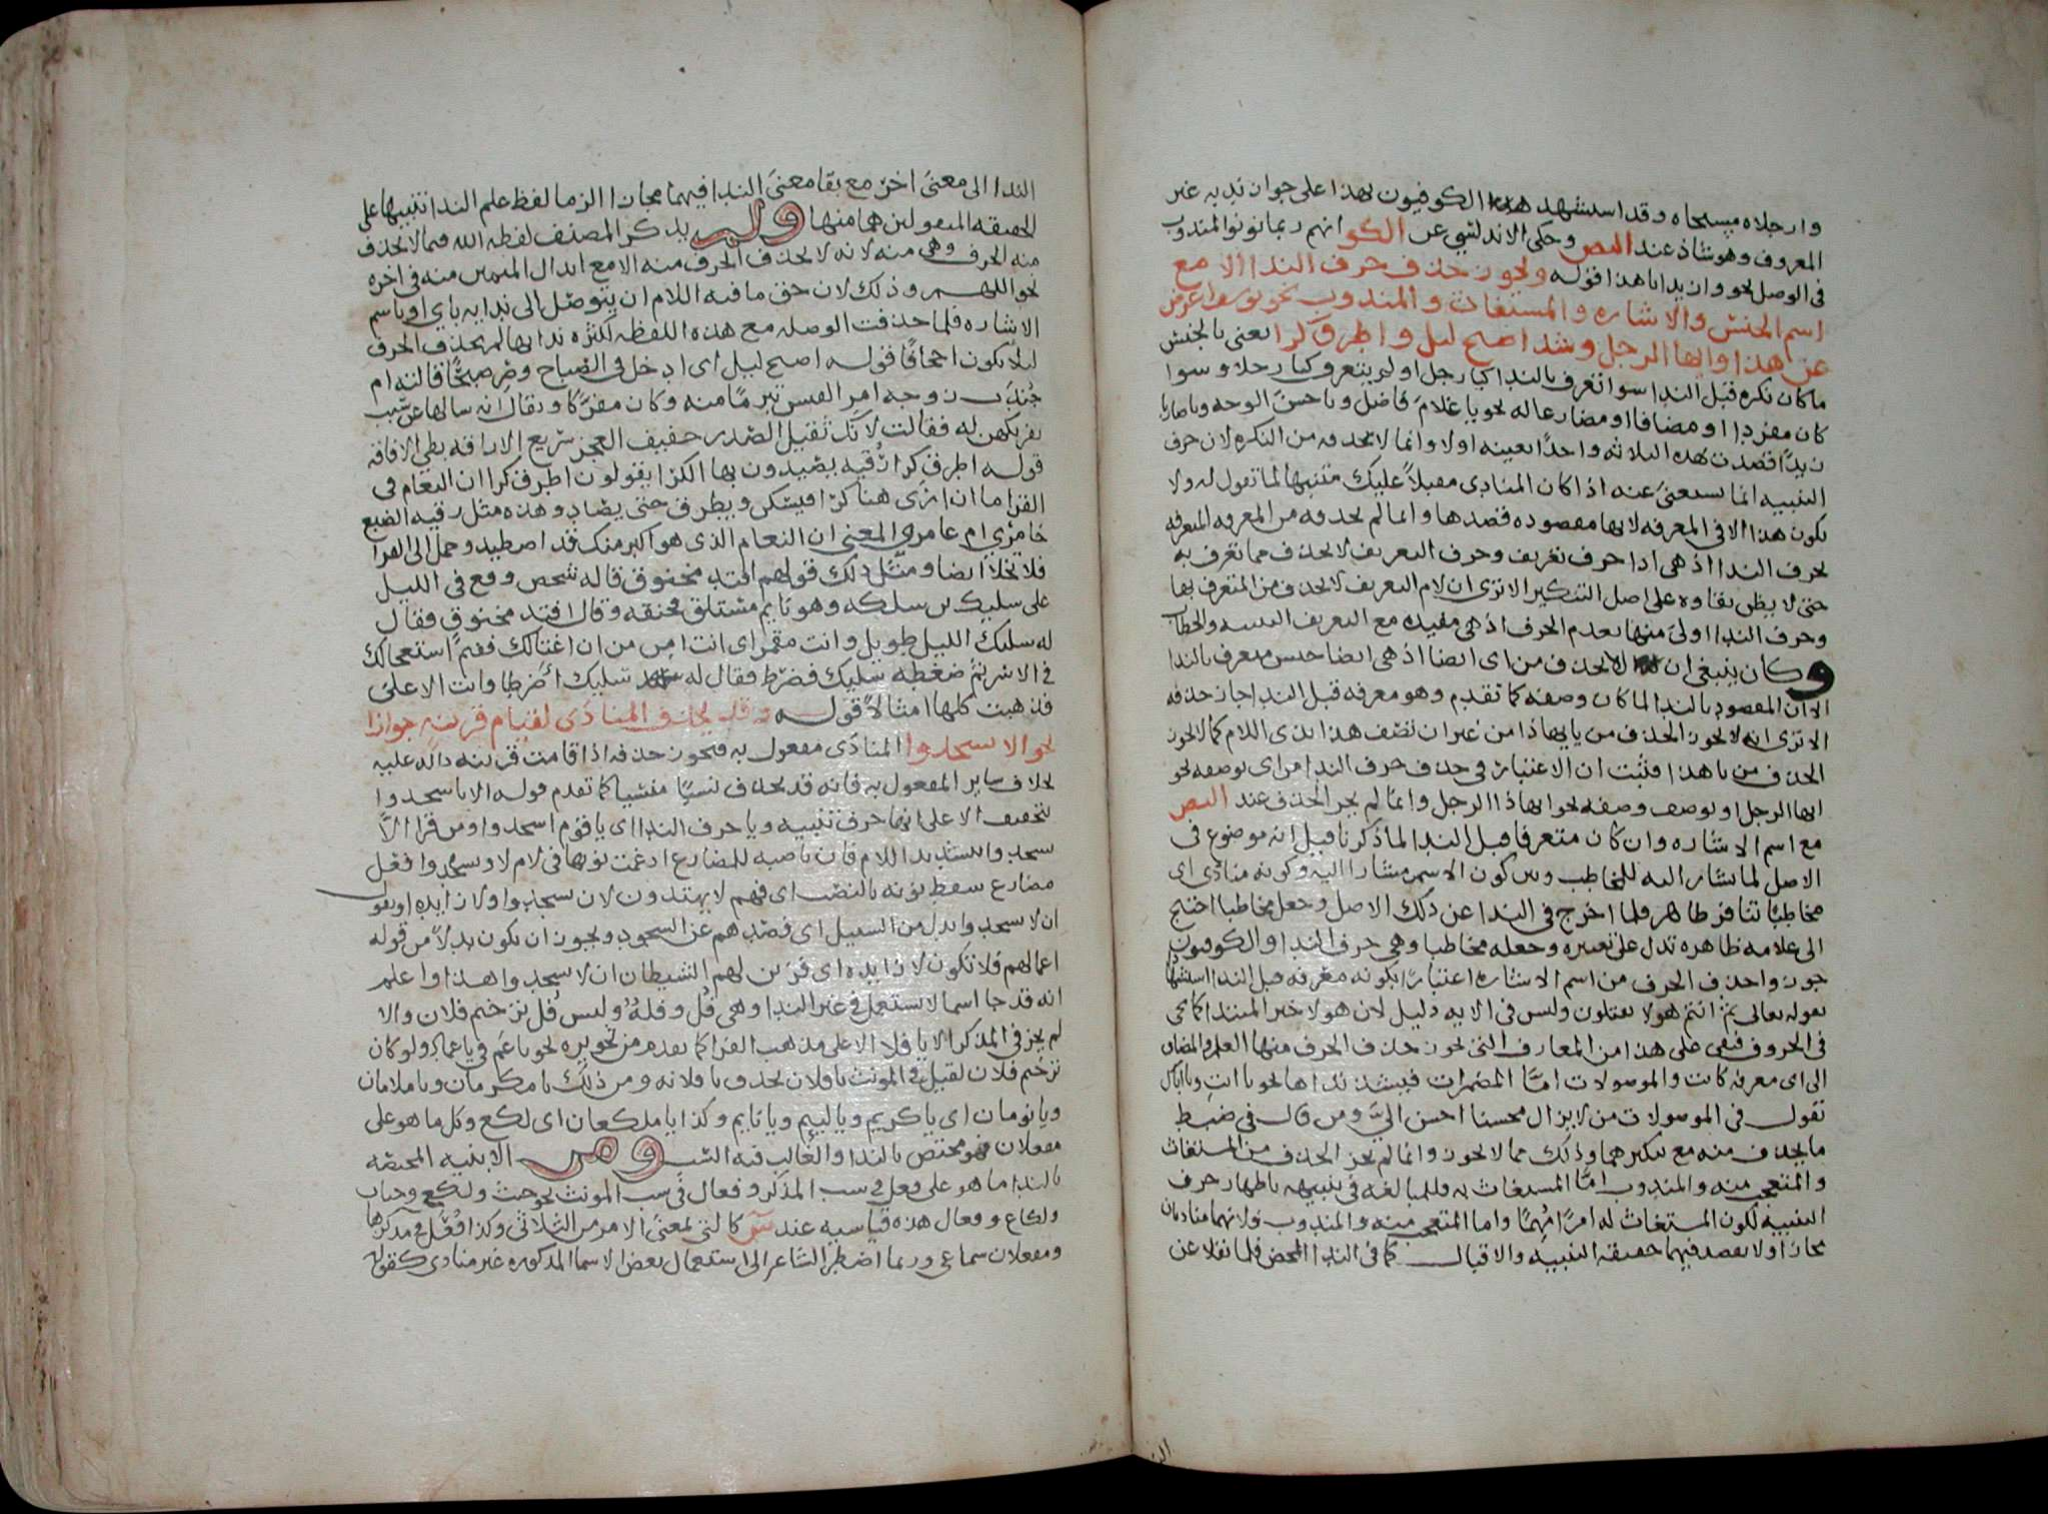 وا رجلاه مسجاه وقد استشهد الكوفيون بهذا على جواز ندبه غير
المعروف وهو شاذ عند البص وحكى الاندلسي عن الكو انهم ربما نونوا المندوب
في الوصل نحو وا زيدا يا هذا قوله ويجوز حذف حرف الندا الا مع
اسم الجنس والاشاره والمستغاث والمندوب نحو يوسف اعرض
عن هذا وايها الرجل وشذ اصبح ليل واطرق كرا يعني بالجنس
ما كان نكره قبل الندا سوا تعرف بالندا كيا رجل او لم يتعرف كيا رجلا وسوا
كان مفردا او مضافا او مضارعا له نحو يا غلام فاضل ويا حسن الوجه ويا ضاربا
زيدا قصدت بهذه الثلاثه واحدا بعينه اولا وانما لا يحذف من النكره لان حرف
التنبيه انما يستغنى عنه اذا كان المنادى مقبلا عليك متنبها لما تقول له ولا
يكون هذا الا في المعرفه لانها مقصوده قصدها وانما لم يحذف من المعرفه المتعرفه
بحرف الندا اذ هي اذا حرف تعريف وحرف التعريف لا يحذف مما تعرف به
حتى لا يظن بقاوه على اصل التنكير الا ترى ان لام التعريف لا يحذف من المتعرف بها
وحرف الندا اولى منها بعدم الحرف اذ هي مفيده مع التعريف التنبيه والخطاب
وكان ينبغي ان لا يحذف من اى ايضا اذ هي ايضا جنس متعرف بالندا
الا ان المقصود بالندا لما كان وصفه كما تقدم وهو معرفه قبل الندا جاز حذفه
الا ترى انه لا يجوز الحذف من يا ايهاذا من غير ان تصف هذا بذى اللام كما لا يجوز
الحذف من يا هذا فثبت ان الاعتبار في حذف حرف الندا من اى بوصفه نحو
ايها الرجل او بوصف وصفه نحو ايهاذا الرجل وانما لم يجز الحذف عند البص
مع اسم الاشاره وان كان متعرفا قبل الندا لما ذكرنا قبل انه موضوع في
الاصل لما يشار اليه للمخاطب وبين كون الاسم مشارا اليه وكونه منادى اى
مخاطبا تنافر ظاهر فلما اخرج في الندا عن ذلك الاصل وجعل مخاطبا احتيج
الى علامه ظاهره تدل على تغييره وجعله مخاطبا وهي حرف الندا والكوفيون
جوزوا حذف الحرف من اسم الاشاره اعتبارا بكونه معرفه قبل الندا استشهادا
بقوله تعالى ثم انتم هولا تقتلون وليس في الايه دليل لان هولا خبر المبتدا كما يجي
في الحروف فبقي على هذا من المعارف التي يجوز حذف الحرف منها العلم والمضاف
الى اى معرفه كانت والموصولات اما المضمرات فيشذ نداها نحو يا انت ويا اياك
تقول في الموصولات من لا يزال محسنا احسن الي ومن قال في ضبط
ما يحذف منه مع تنكيرهما وذلك مما لا يجوز وانما لم يجز الحذف من المستغاث
والمتعجب منه والمندوب اما المستغاث به فللمبالغه في تنبيهه باظهار حرف
التنبيه لكون المستغاث له امرا مهما واما المتعجب منه والمندوب فلانهما مناديان
مجازا ولا يقصد فيهما حقيقه التنبيه والاقبال كما في الندا المحض فلما نقلا عن
الندا الى معنى اخر مع بقا معنى الندا فيهما مجازا الزما لفظ علم الندا تنبيها على
الحقيقه المنقولين هما منها ولم يذكر المصنف لفظه الله فيما لا يحذف
منه الحرف وهي منه لانه لا يحذف الحرف منه الا مع ابدال الميمين منه في اخره
نحو اللهم وذلك لان حق ما فيه اللام ان يتوصل الى ندايه باي او باسم
الاشاره فلما حذفت الوصله مع هذه اللفظه لكثره نداها لم يحذف الحرف
ليلا يكون اجحافا قوله اصبح ليل اى ادخل في الصباح وصر صبحا قالته ام
جندب زوجه امرء القيس تبرما منه وكان مفركا ويقال انه سالها عن سبب
تفريكهن له فقالت لانك ثقيل الصدر خفيف العجز سريع الاراقه بطي الافاقه
قوله اطرق كرا رقيه يصيدون بها الكرا يقولون اطرق كرا ان النعام في
القرا ما ان ارى هنا كرا فيسكن ويطرق حتى يصاد وهذه مثل رقيه الضبع
خامرى ام عامر والمعنى ان النعام الذى هو اكبر منك قد اصطيد وحمل الى القرا
فلا تخلا ايضا ومثل ذلك قولهم افتد مخنوق قاله شخص وقع في الليل
على سليك بن سلكه وهو نايم مستلق فخنقه وقال افتد مخنوق فقال
له سليك الليل طويل وانت مقمر اى انت امن من ان اغتالك ففيم استعجالك
في الاسر ثم ضغطه سليك فضرط فقال له سليك اضرطا وانت الاعلى
فذهبت كلها امثالا قوله وقد يحذف المنادى لقيام قرينه جوازا
نحو الا يا اسجدوا المنادى مفعول به فيجوز حذفه اذا قامت قرينه داله عليه
بخلاف ساير المفعول به فانه قد يحذف نسيا منسيا كما تقدم قوله الا يا اسجدوا
بتخفيف الا على انها حرف تنبيه ويا حرف الندا اى يا قوم اسجدوا ومن قرا الا
يسجدوا بتشديد اللام فان ناصبه للمضارع ادغمت نونها في لام لا ويسجدوا فعل
مضارع سقط نونه بالنصب اى فهم لا يهتدون لان يسجدوا ولا زايده او نقول
ان لا يسجدوا بدل من السبيل اى فصدهم عن السجود ويجوز ان يكون بدلا من قوله
اعمالهم فلا تكون لا زايده اى فزين لهم الشيطان ان لا يسجدوا هذا واعلم
انه قد جا اسما لا يستعمل في غير الندا وهي فل وفله وليس فل ترخيم فلان والا
لم يجز في المذكر الا يا فلا الا على مذهب الفرا كما تقدم من تجويزه نحو يا عم في يا عماد ولو كان
ترخيم فلان لقيل في المونث يا فلان بحذف يا فلانه ومن ذلك يا مكرمان ويا ملامان
ويا نومان اى يا كريم ويا لييم ويا نايم وكذا يا ملكعان اى لكع وكل ما هو على
مفعلان فهو مختص بالندا والغالب فيه السب ومن الابنيه المختصه
بالندا ما هو على فعل في سب المذكر وفعال في سب المونث نحو خبث ولكع وخباث
ولكاع وفعال هذه قياسيه عند س كالتي بمعنى الامر من الثلاثي وكذا فعل في مذكرها
ومفعلان سماعي وربما اضطر الشاعر الى استعمال بعض الاسما المذكوره غير منادى كقوله